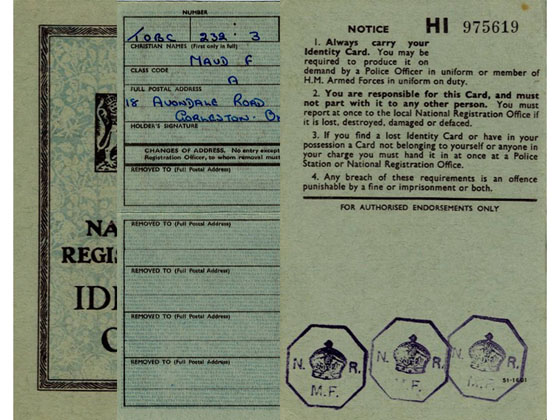 NA
REGIS
IDE
C
NUMBER
TOBC 232 : 3
CHRISTIAN NAMES (First only in full)
MAUD F
CLASS CODE
A
FULL POSTAL ADDRESS
18 AVONDALE ROAD
GORLESTON. ON
HOLDER'S SIGNATURE
CHANGES OF ADDRESS. No entry except
Registration Officer, to whom removal must
REMOVED TO (Full Postal Address)
REMOVED TO (Full Postal Address)
REMOVED TO (Full Postal Address)
REMOVED TO (Full Postal Address)
REMOVED TO (Full Postal Address)
NOTICE HI 975619
1. Always carry your
Identity Card. You may be
required to produce it on
demand by a Police Officer in uniform or member of
H.M. Armed Forces in uniform on duty.
2. You are responsible for this Card, and must
not part with it to any other person. You must
report at once to the local National Registration Office if
it is lost, destroyed, damaged or defaced.
3. If you find a lost Identity Card or have in your
possession a Card not belonging to yourself or anyone in
your charge you must hand it in at once at a Police
Station or National Registration Office.
4. Any breach of these requirements is an offence
punishable by a fine or imprisonment or both.
FOR AUTHORISED ENDORSEMENTS ONLY
N. R.
M.F.
N. R.
M.F.
N. R.
M.F.